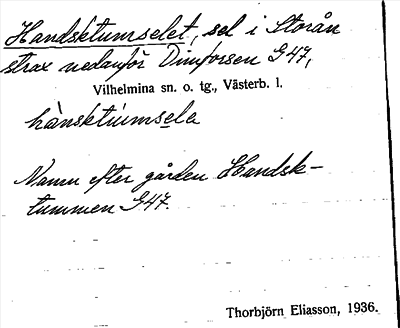 Handsktumselet, sel i Storån
strax nedanför Dimforsen G47,
Vilhelmina sn. o. tg., Västerb. l.
hànsktúmsela
Namn efter gården Handsk-
tummen G47.
Thorbjörn Eliasson, 1936.